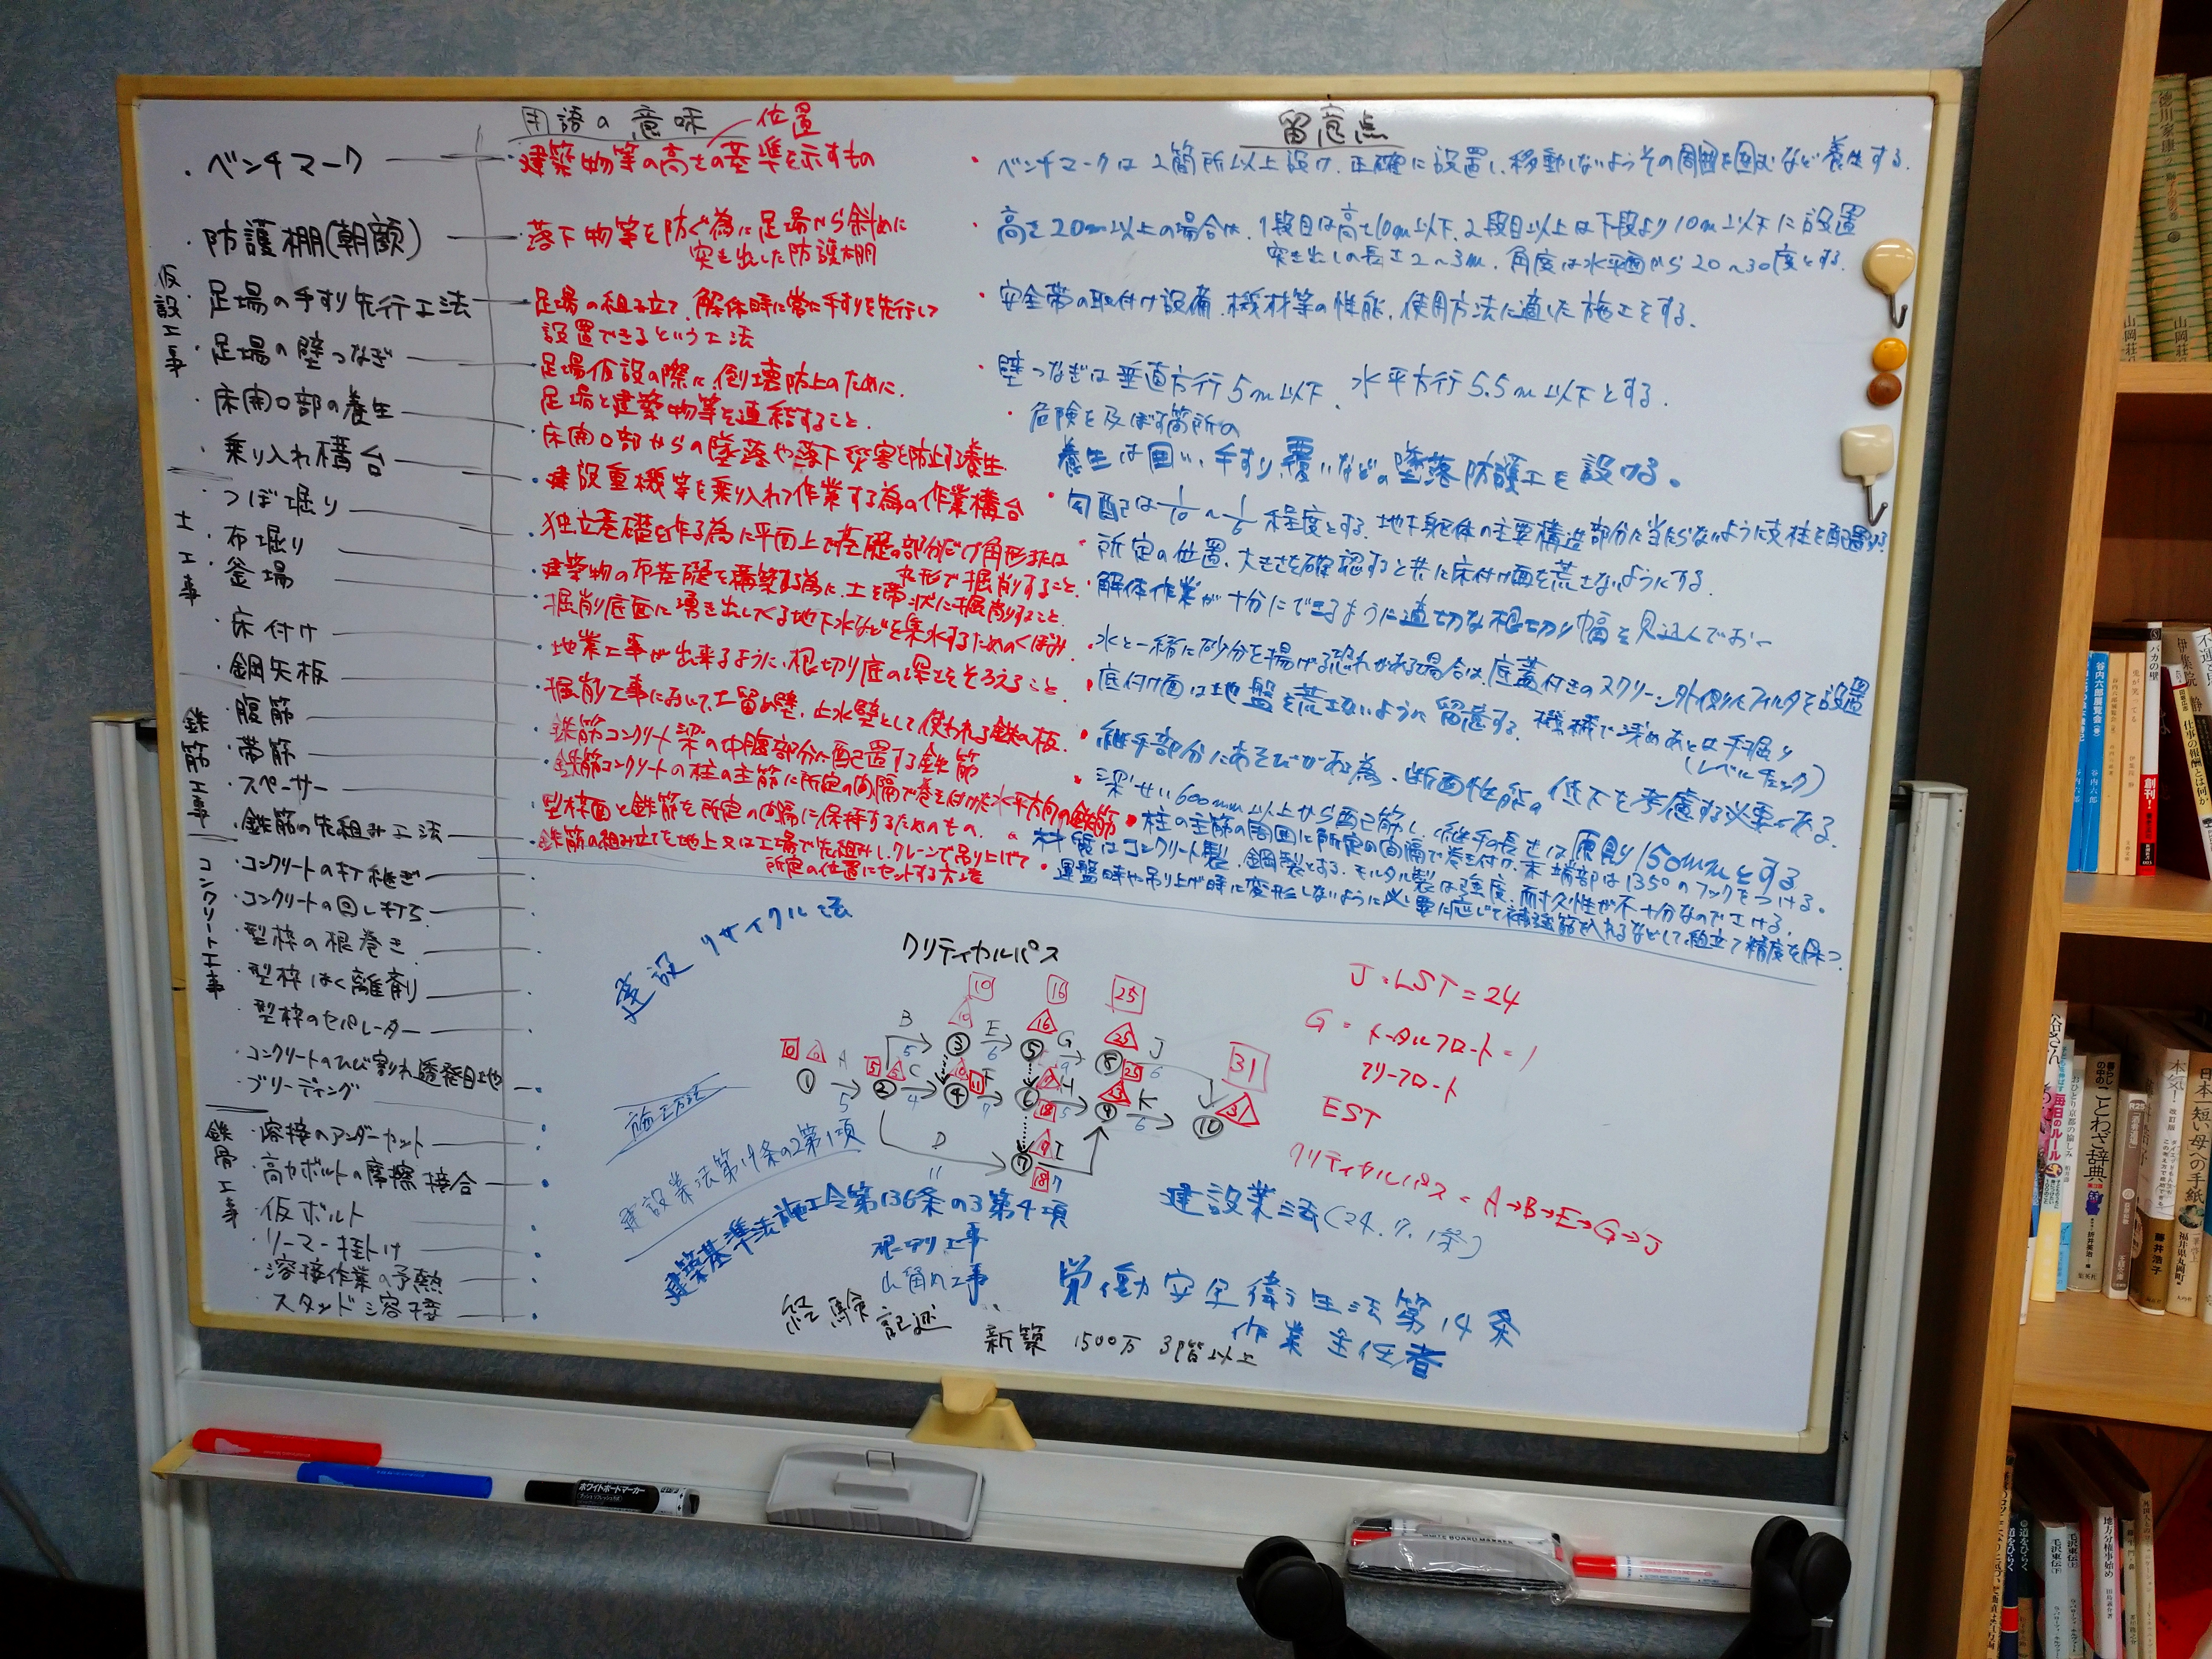 用語の意味
位置
留意点
仮設工事
・ベンチマーク
・建築物等の高さの基準を示すもの
・ベンチマークは2箇所以上設け、正確に設置し、移動しないようその周囲を囲むなど養生する。
・防護棚(朝顔)
・落下物等を防ぐ為に足場から斜めに
突き出した防護棚
・高さ20m以上の場合は、1段目は高さ10m以下、2段目以上は下段より10m以下に設置
突き出しの長さ2〜3m、角度は水平面から20〜30度とする。
・足場の手すり先行工法
・足場の組み立て、解体時に常に手すりを先行して
設置できるという工法
・安全帯の取付け設備、機材等の性能、使用方法に適した施工をする。
・足場の壁つなぎ
足場仮設の際に、倒壊防止のために、
足場と建築物等を連結すること。
・壁つなぎは垂直方行5m以下、水平方行5.5m以下とする。
・床開口部の養生
床開口部からの墜落や落下災害を防止する養生
・危険を及ぼす箇所の
養生は囲い、手すり、覆いなどの墜落防護工を設ける。
・乗り入れ構台
・建設重機等を乗り入れて作業する為の作業構台
・勾配は1/10〜1/6程度とする。地下躯体の主要構造部分に当たらないように支柱を配置する
土工事
・つぼ堀り
・独立基礎を作る為に平面上で基礎の部分だけ角形または
丸形で掘削すること。
・所定の位置、大きさを確認すると共に床付け面を荒さないようにする。
・布堀り
・建築物の布基礎を構築する為に、土を帯状に掘削すること。
・解体作業が十分にできるように適切な根切り幅を見込んでおく
・釜場
・掘削底面に湧き出してくる地下水などを集水するためのくぼみ
・水と一緒に砂分を揚げる恐れがある場合は底蓋付きのスクリーン外側にフィルタを設置
・床付け
・地業工事が出来るように、根切り底の深さをそろえること
・底付け面は地盤を荒さないように留意する。機械で深めあとは手掘り
(レベルチェック)
・鋼矢板
・掘削工事において、土留め壁、止水壁として使われる鉄の板。
・継手部分にあそびがある為、断面性能の低下を考慮する必要がある。
鉄筋工事
・腹筋
・鉄筋コンクリート梁の中腹部分に配置する鉄筋
・梁せい600mm以上から配筋し、継手の長さは原則150mmとする
・帯筋
・鉄筋コンクリートの柱の主筋に所定の間隔で巻き付けた水平方向の鉄筋
・柱の主筋の周囲に所定の間隔で巻き付け、末端部は135°のフックをつける。
・スペーサー
・型枠面と鉄筋を所定の間隔に保持するためのもの。
・材質はコンクリート製、鋼製とする。モルタル製は強度、耐久性が不十分なのでさける。
・鉄筋の先組み工法
・鉄筋の組み立てを地上又は工場で先組みし、クレーンで吊り上げて
所定の位置にセットする方法
・運盤時や吊り上げ時に変形しないように必要に応じて補強筋を入れるなどして、組立て精度を保つ。
コンクリート工事
・コンクリートの打継ぎ
・コンクリートの回し打ち
・型枠の根巻き
・型枠はく離剤
・型枠のセパレーター
・コンクリートのひび割れ誘発目地
・ブリーディング
鉄骨工事
・溶接のアンダーカット
・高力ボルトの摩擦接合
・仮ボルト
・リーマー掛け
・溶接作業の予熱
・スタッド溶接
建設リサイクル法
クリティカルパス
10 16 25
10 16 25
B E G J
5 6 9 6
③ ⑤ ⑧
0 0 A 5 5 C F H K 31
① ② ④ ⑥ ⑨ ⑩
5 4 7 5 6
D 11
⑦ I 7
18
J・LST=24
G = トータルフロート=1
フリーフロート
EST
クリティカルパス = A→B→E→G→J
施工方法
建設業法第19条の2第1項
建築基準法施工令第136条の3第4項
根切り工事
山留め工事
建設業法(24.7.1条)
労働安全衛生法第14条
作業主任者
経験記述
新築 1500万 3階以上
ホワイトボードマーカー
徳川家康 2
山岡荘
バカの壁
創刊!
谷内六郎展覧会
谷内六郎
伊集院静
仕事の報酬とは何か
毎日のルール
ことわざ辞典
折井英治
集英社
藤井浩子
日本一短い母への手紙
福井県丸岡町
地方分権事始め
毛沢東伝
道をひらく
WHITE BOARD MARKER